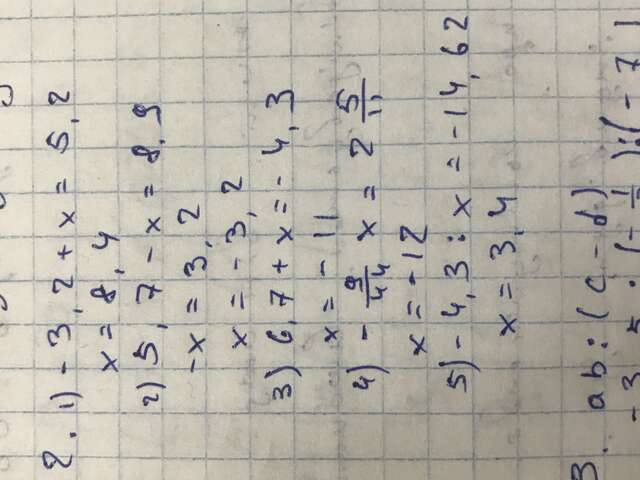 2. 1) -3,2 + x = 5,2
x = 8,4
2) 5,7 - x = 8,9
-x = 3,2
x = -3,2
3) 6,7 + x = -4,3
x = -11
4) - 9/44 x = 2 5/11
x = -12
5) -4,3 : x = -14,62
x = 3,4
3. ab : (c - d)